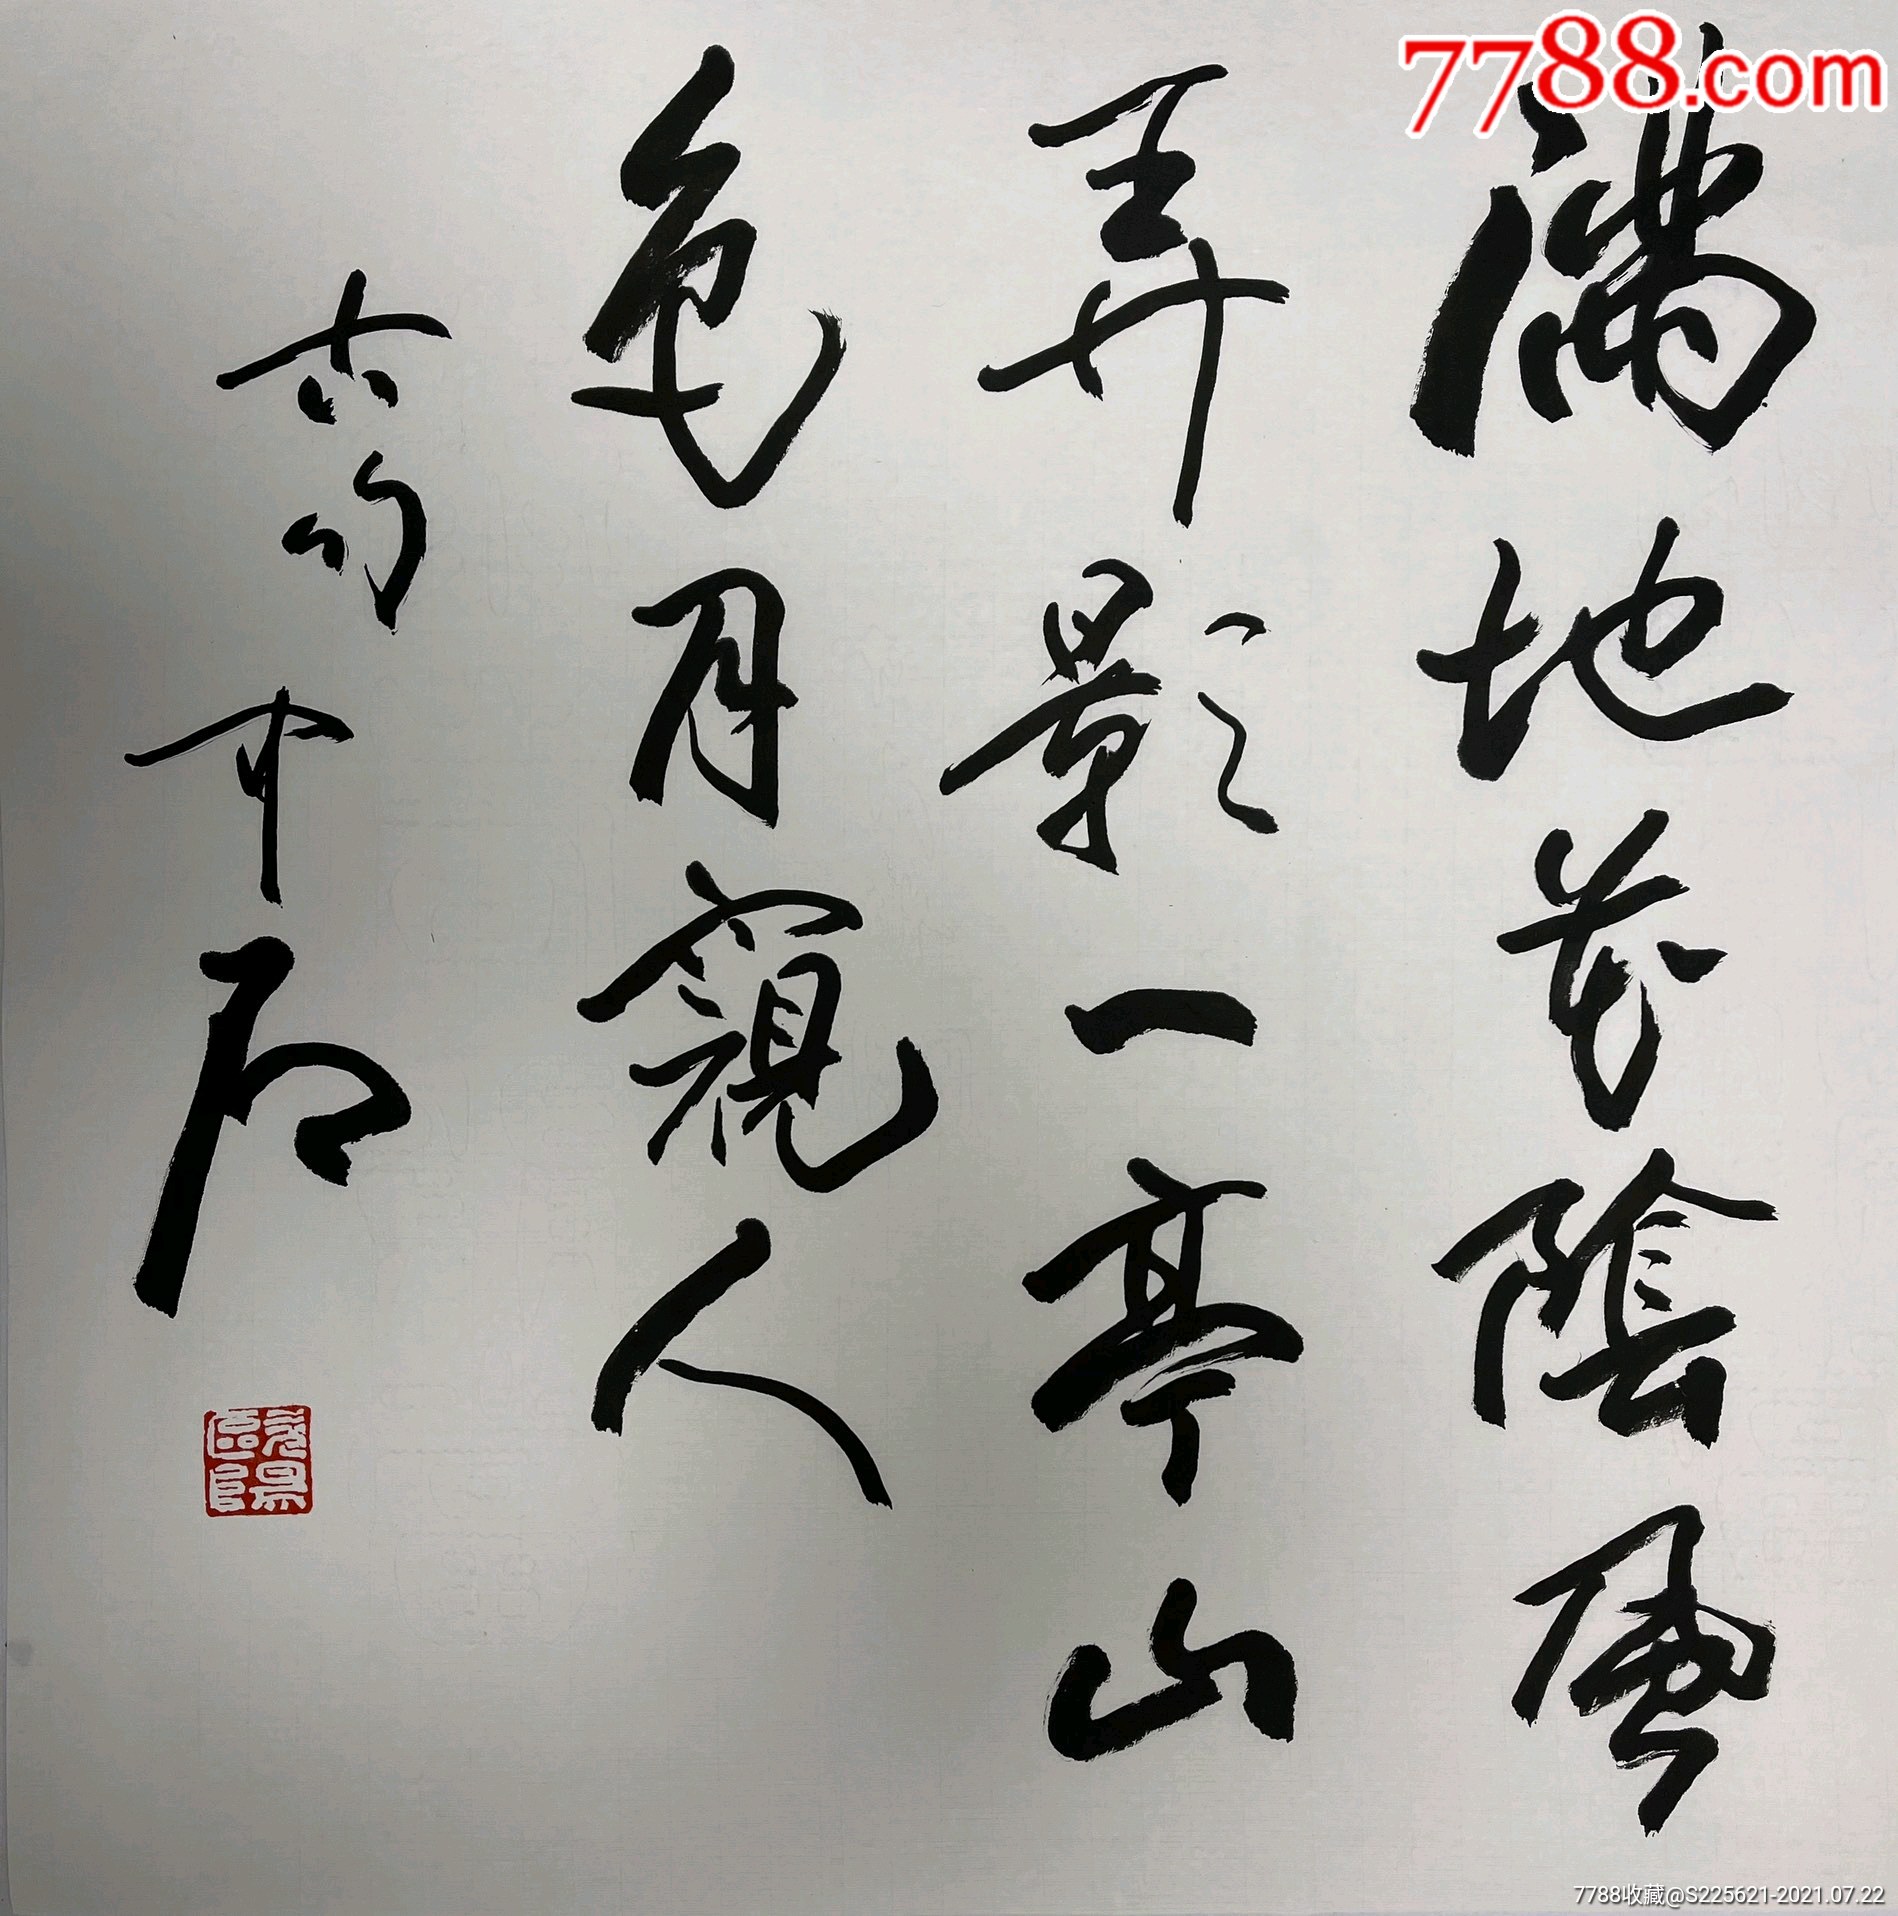 7788.com
滿地花陰風
弄影一亭山
色月窺人
古句中石
歐陽
7788收藏@S225621-2021.07.22